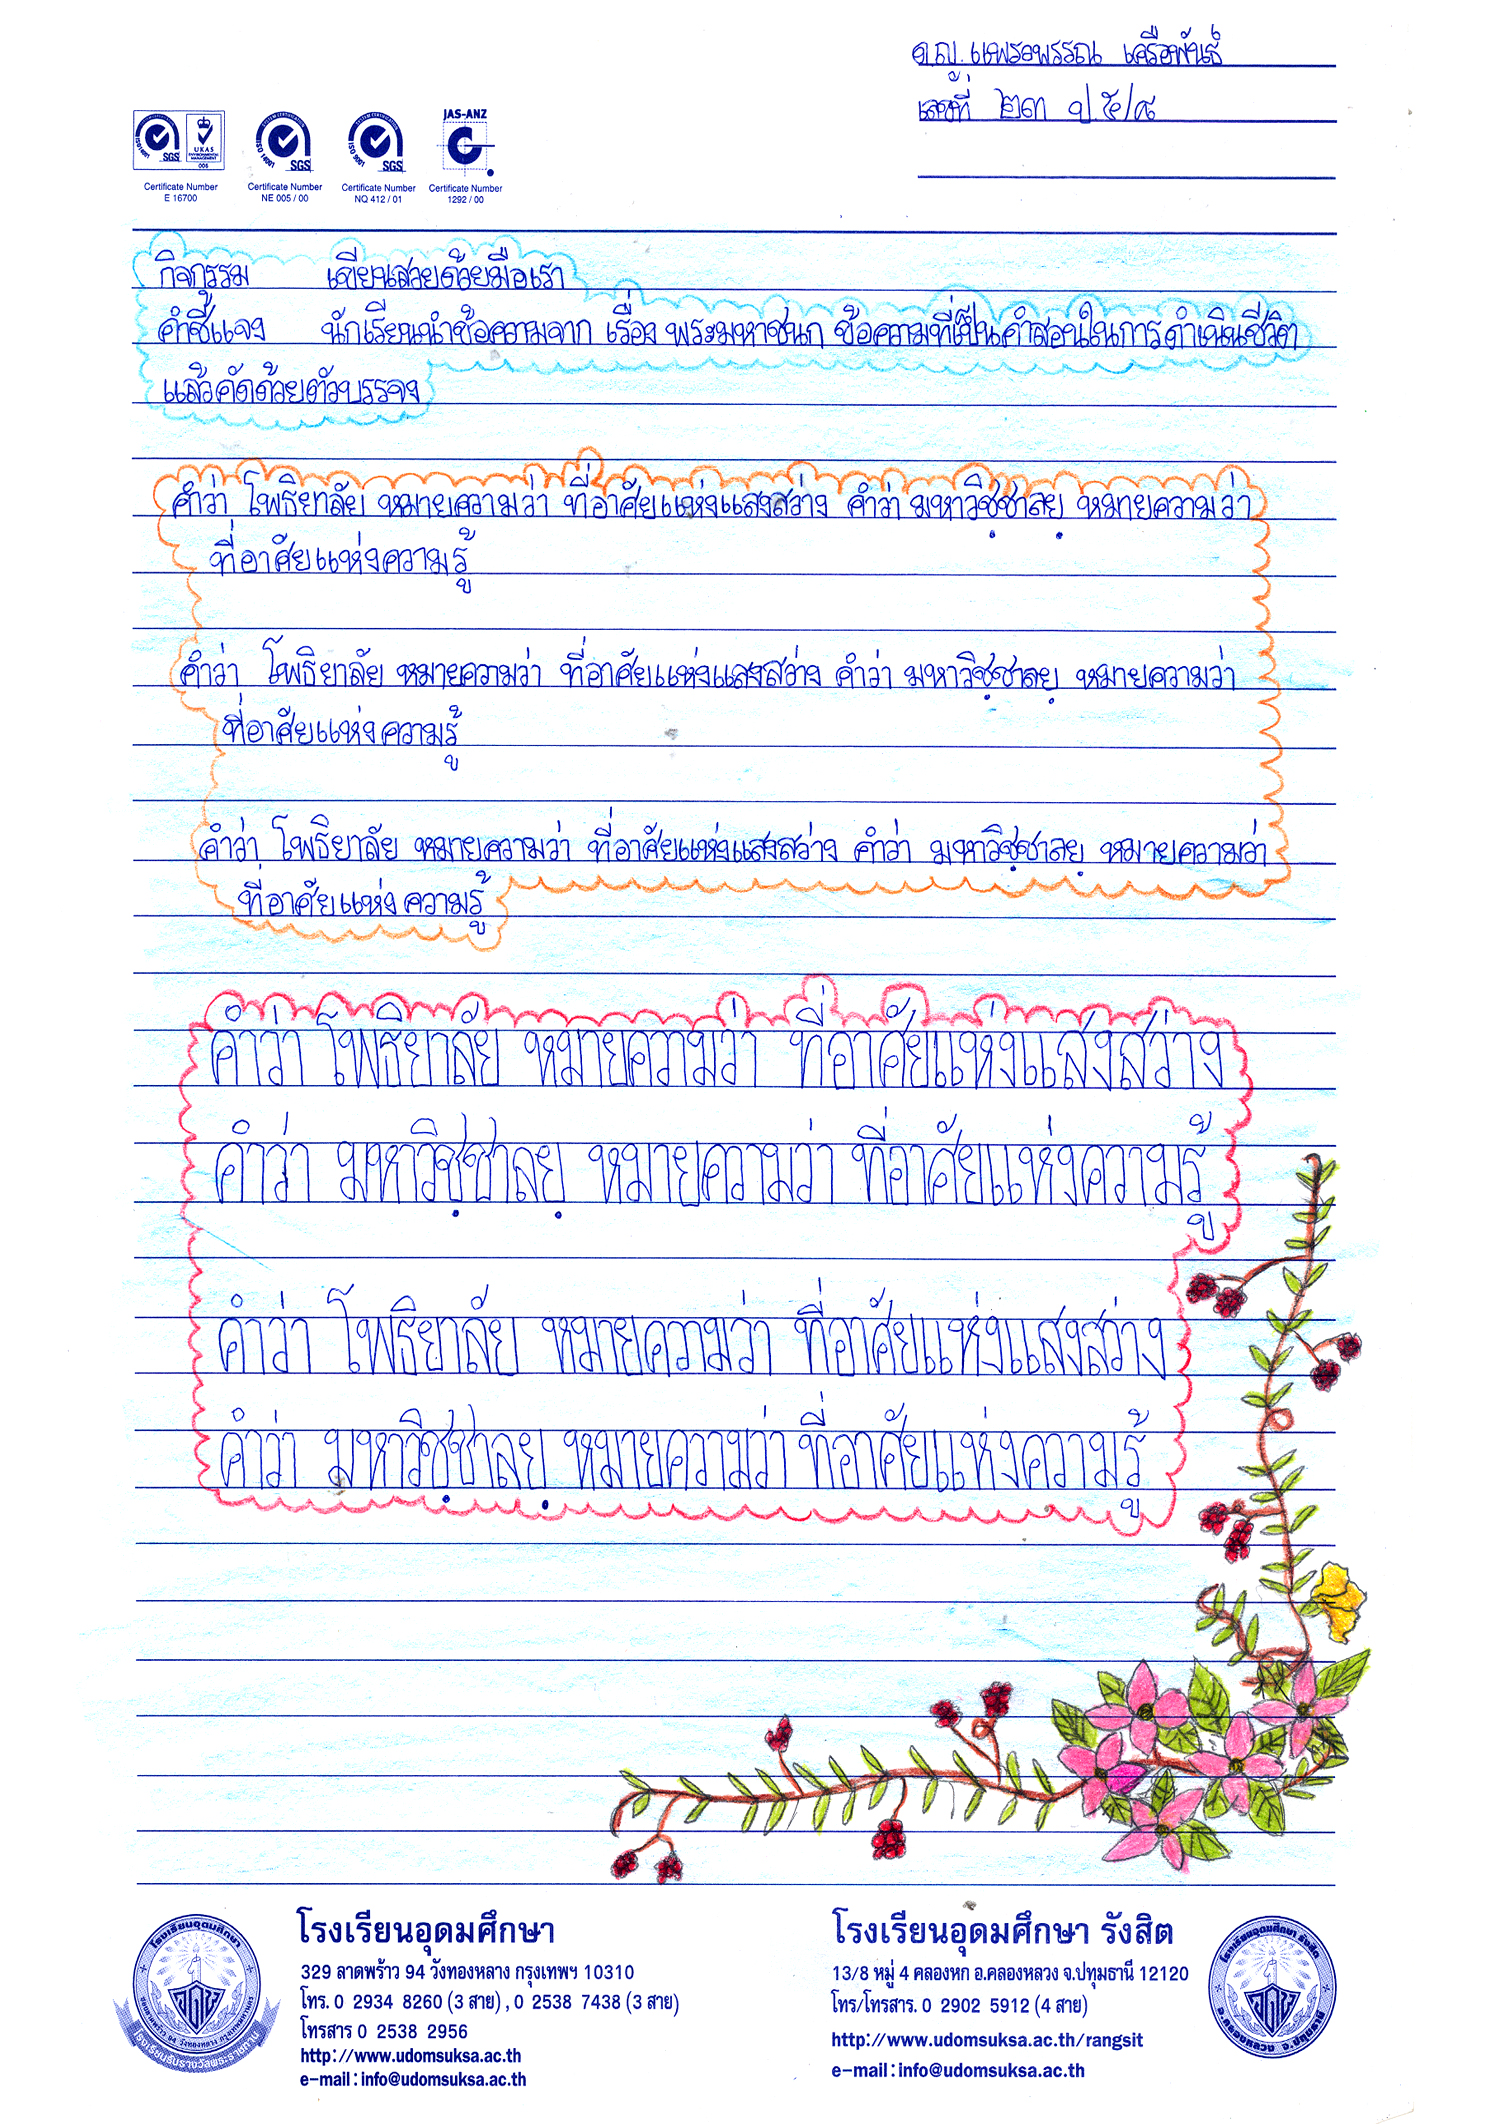 ด.ญ. แพรวพรรณ เครือพันธ์
เลขที่ ๒๓ ป.๕/๘
JAS-ANZ
SGS
UKAS
ENVIRONMENTAL
MANAGEMENT
006
SGS
SGS
Certificate Number
E 16700
Certificate Number
NE 005 / 00
Certificate Number
NQ 412 / 01
Certificate Number
1292 / 00
กิจกรรม เขียนสวยด้วยมือเรา
คำชี้แจง นักเรียนนำข้อความจาก เรื่อง พระมหาชนก ข้อความที่เป็นคำสอนในการดำเนินชีวิต
แล้วคัดด้วยตัวบรรจง
คำว่า โพธิยาลัย หมายความว่า ที่อาศัยแห่งแสงสว่าง คำว่า มหาวิชฺชาลยฺ หมายความว่า
ที่อาศัยแห่งความรู้
คำว่า โพธิยาลัย หมายความว่า ที่อาศัยแห่งแสงสว่าง คำว่า มหาวิชฺชาลยฺ หมายความว่า
ที่อาศัยแห่งความรู้
คำว่า โพธิยาลัย หมายความว่า ที่อาศัยแห่งแสงสว่าง คำว่า มหาวิชฺชาลยฺ หมายความว่า
ที่อาศัยแห่งความรู้
คำว่า โพธิยาลัย หมายความว่า ที่อาศัยแห่งแสงสว่าง
คำว่า มหาวิชฺชาลยฺ หมายความว่า ที่อาศัยแห่งความรู้
คำว่า โพธิยาลัย หมายความว่า ที่อาศัยแห่งแสงสว่าง
คำว่า มหาวิชฺชาลยฺ หมายความว่า ที่อาศัยแห่งความรู้
โรงเรียนอุดมศึกษา
329 ลาดพร้าว 94 วังทองหลาง กรุงเทพฯ 10310
โทร. 0 2934 8260 (3 สาย) , 0 2538 7438 (3 สาย)
โทรสาร 0 2538 2956
http://www.udomsuksa.ac.th
e-mail : info@udomsuksa.ac.th
โรงเรียนอุดมศึกษา รังสิต
13/8 หมู่ 4 คลองหก อ.คลองหลวง จ.ปทุมธานี 12120
โทร/โทรสาร. 0 2902 5912 (4 สาย)
http://www.udomsuksa.ac.th/rangsit
e-mail : info@udomsuksa.ac.th